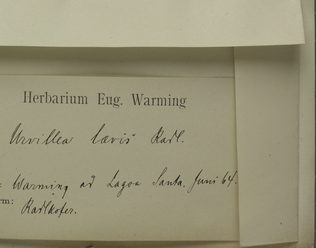 Herbarium Eug. Warming
Urvillea laevis Radl.
: Warming ad Lagoa Santa. Juni 64.
rm: Radlkofer.